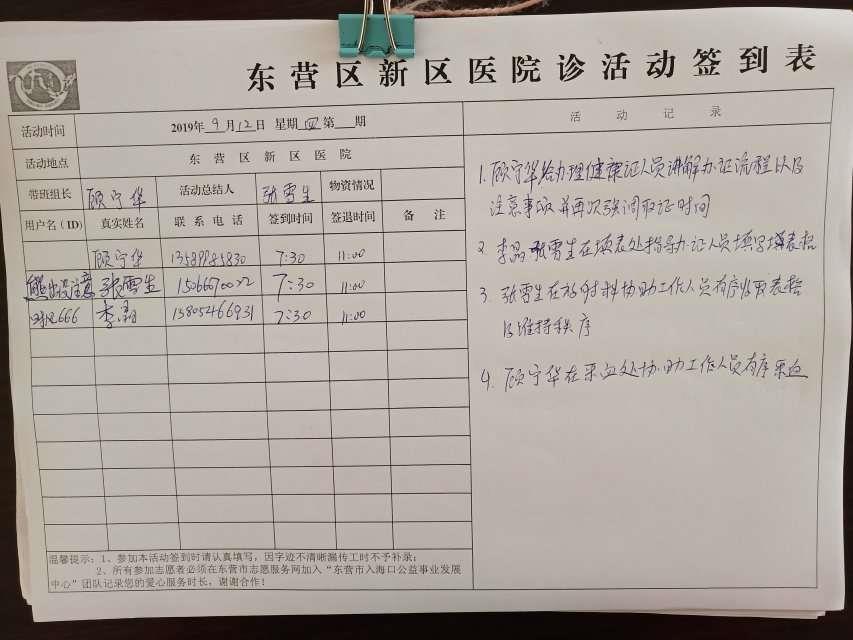 东营区新区医院诊活动签到表
活动时间 2019年9月12日 星期四第 期
活动地点 东营区新区医院
带班组长 顾宁华 活动总结人 张雪生 物资情况
用户名(ID) 真实姓名 联系电话 签到时间 签退时间 备注
顾宁华 13589985830 7:30 11:00
熊出没注意 张雪生 15066670022 7:30 11:00
666 李晶 13805466931 7:30 11:00
温馨提示:1、参加本活动签到时请认真填写,因字迹不清晰漏传工时不予补录;
2、所有参加志愿者必须在东营市志愿服务网加入“东营市入海口公益事业发展
中心”团队记录您的爱心服务时长,谢谢合作!
活动记录
1. 顾宁华给办理健康证人员讲解办证流程以及
注意事项并再次强调取证时间
2. 李晶 张雪生在填表处指导办证人员填写填表格
3. 张雪生在放射科协助工作人员有序收取表格
及维持秩序
4. 顾宁华在采血处协助工作人员有序采血